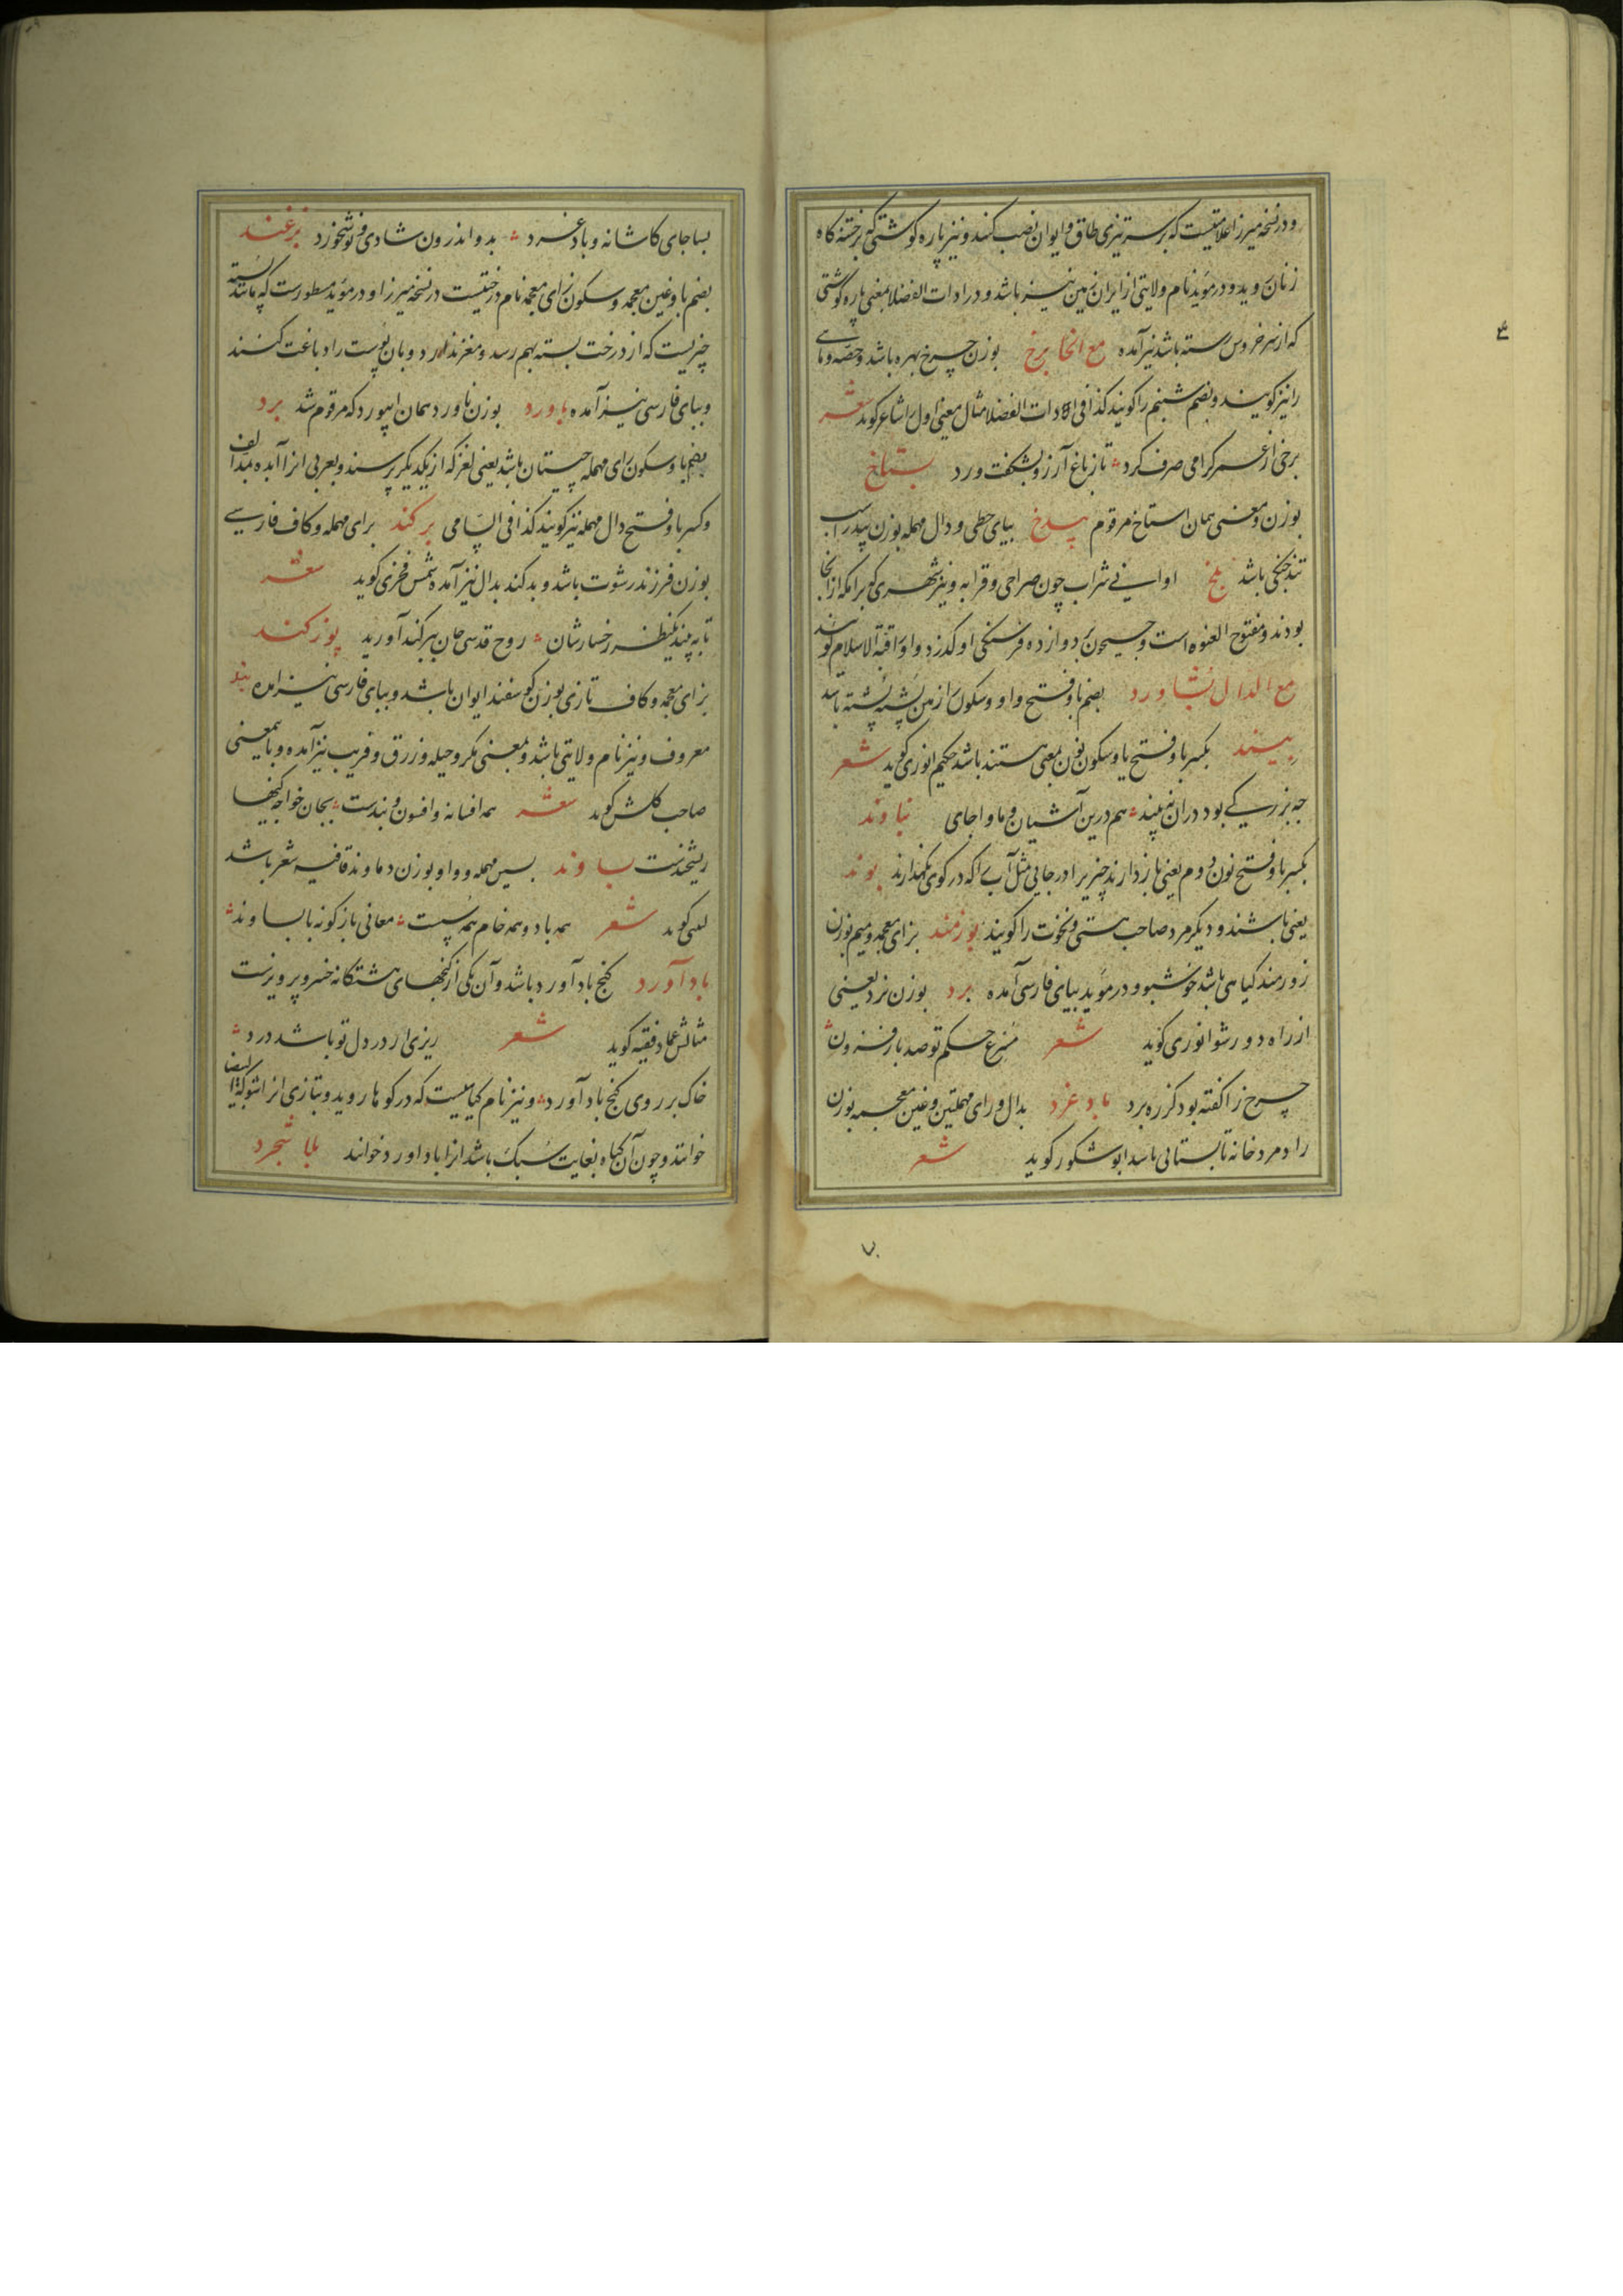 و در نسخه میرزا علامتیست که بر سر تیزی طاق و ایوان نصب کنند و نیز پاره گوشتی که بر ختنه گاه
زنان روید و در مؤید نام ولایتی از ایران زمین نیز باشد و در ادات الفضلا بمعنی پاره گوشتی
که از سر خروس رسته باشد نیز آمده مع الخا برخ بوزن چرخ بهره باشد و حصه و ماهی
را نیز گویند و بضم شبنم را گویند کذا فی الادات الفضلا مثال معنی اول را شاعر گوید شعر
برخی از عمر گرامی صرف کرد تا ز باغ آرزو بشکفت ورد بستاخ
بوزن و معنی همان استاخ مرقوم بیدخ بیای حطی و دال مهمله بوزن بیدر اسب
تند جنگی باشد بلخ اوانی شراب چون صراحی و قرابه و نیز شهری که برامکه از آنجا
بودند و مفتوح العنوه است و جیحون بر دوازده فرسنگی او گذرد و او را قبة الاسلام گویند
مع الدال بشاورد بضم با و فتح واو و سکون را زمین پشته پشته باشد
بیند بکسر با و فتح یا و سکون نون بمعنی هستند باشد حکیم انوری گوید شعر
چه بزرگی بود در آن نه بیند هم درین آشیان و ماوا جای بناوند
بکسر با و فتح نون دوم یعنی باز دارند چیزیرا در جایی مثل آب را که در گوی نگهدارند بوند
یعنی باشند و دیگر مرد صاحب هستی و نخوت را گویند بوزمند بزای معجمه و میم بوزن
زورمند گیاهی باشد خوشبو و در مؤید بیای فارسی آمده برد بوزن نرد یعنی
از راه دور شو انوری گوید شعر شرع حکم تو صد بار فزون
چرخ را گفته بود کز ره برد بادغرد بدال و رای مهملتین و غین معجمه بوزن
رادمرد خانه تابستانی باشد ابو شکور گوید شعر
بسا جای کاشانه و بادغرد بدو اندرون شادی و نوشخورد بزغند
بضم با و غین معجمه و سکون زای معجمه نام درختیست در نسخه میرزا و در مؤید مسطورست که مانند پسته
چیزیست که از درخت پسته بهم رسد و مغز ندارد و بان پوست را دباغت کنند
و ببای فارسی نیز آمده باورد بوزن ناورد همان ابیورد که مرقوم شد برد
بضم با و سکون رای مهمله چیستان باشد یعنی لغز که از یکدیگر پرسند و بعربی انرا آبده بمد الف
و کسر با و فتح دال مهمله نیز گویند کذا فی السامی برکند برای مهمله و کاف فارسی
بوزن فرزند رشوت باشد و بدکند بدال نیز آمده شمس فخری گوید شعر
تا به بیند یکنظر رخسارشان روح قدسی جان ببرکند آورید بوزکند
بزای معجمه و کاف تازی بوزن گوسفند ایوان باشد و ببای فارسی نیز امده بند
معروف و نیز نام ولایتی باشد و بمعنی مکر و حیله و زرق و فریب نیز آمده و باینمعنی
صاحب گلشن گوید شعر همه افسانه و افسون و بندست بجان خواجه کاینها
ریشخندست بساوند بسین مهمله و واو بوزن دماوند قافیه شعر باشد
لبیبی گوید شعر همه باد و همه خام همه سست معانی بازگونه با بساوند
بادآورد گنج بادآورد باشد و آن یکی از گنجهای هشتگانه خسرو پرویزست
مثالش عماد فقیه گوید شعر ریزی ار در دل تو باشد درد
خاک بر روی گنج بادآورد و نیز نام گیاهیست که در کوهها روید و بتازی انرا شوکة البیضا
خوانند و چون آن گیاه بغایت سبک باشد انرا باداورد خوانند
ع